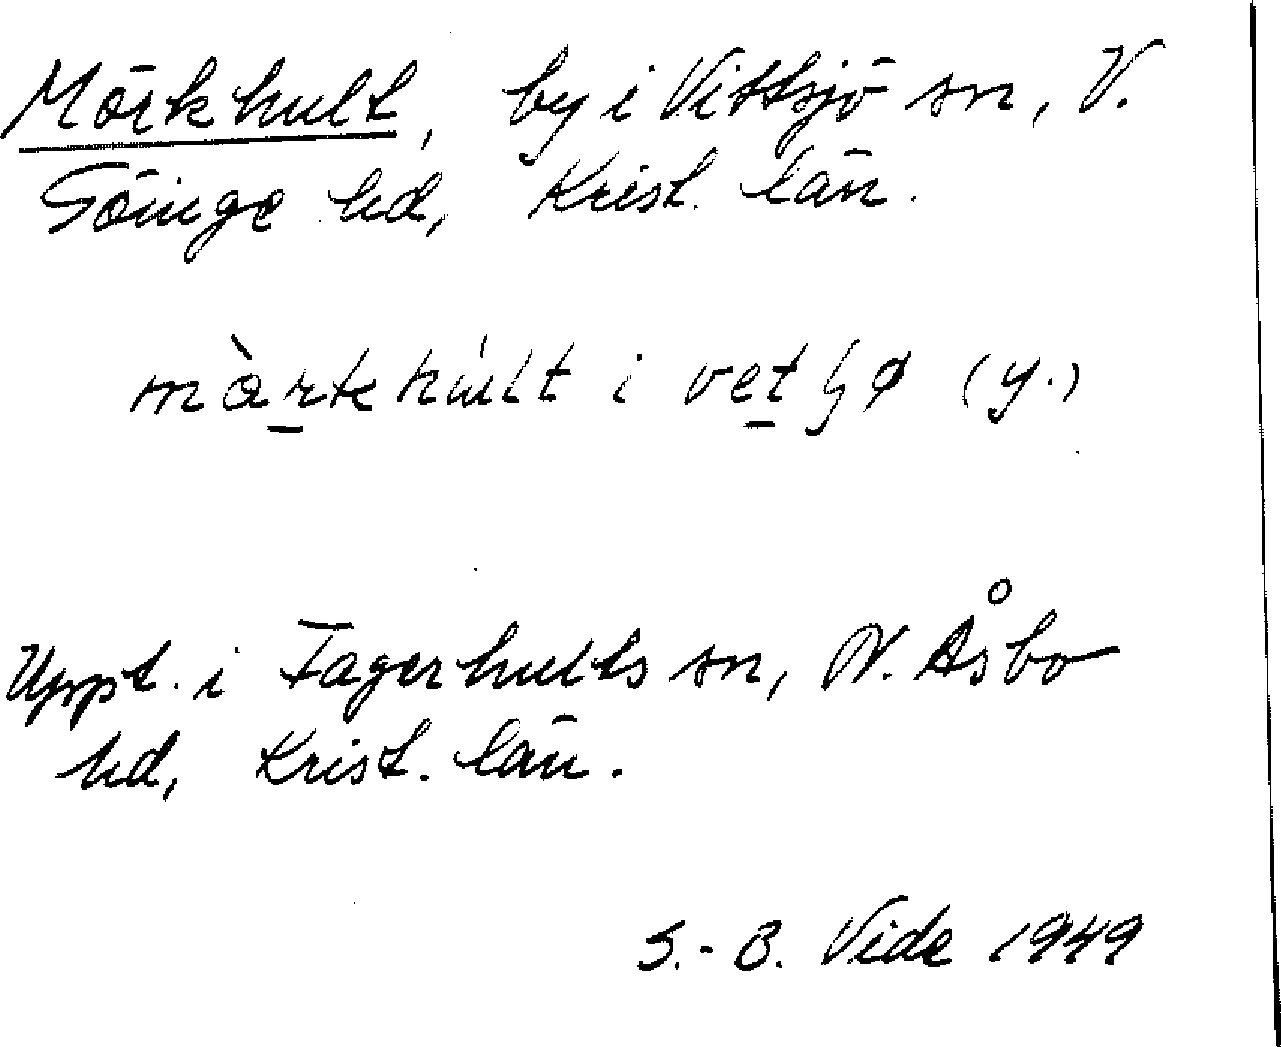 Mörkhult, by i Vittsjö sn, V.
Göinge hd, Krist. län.
i (y.)
Uppt. i Fagerhults sn, N. Åsbo
hd, Krist. län.
S.-B. Vide 1949